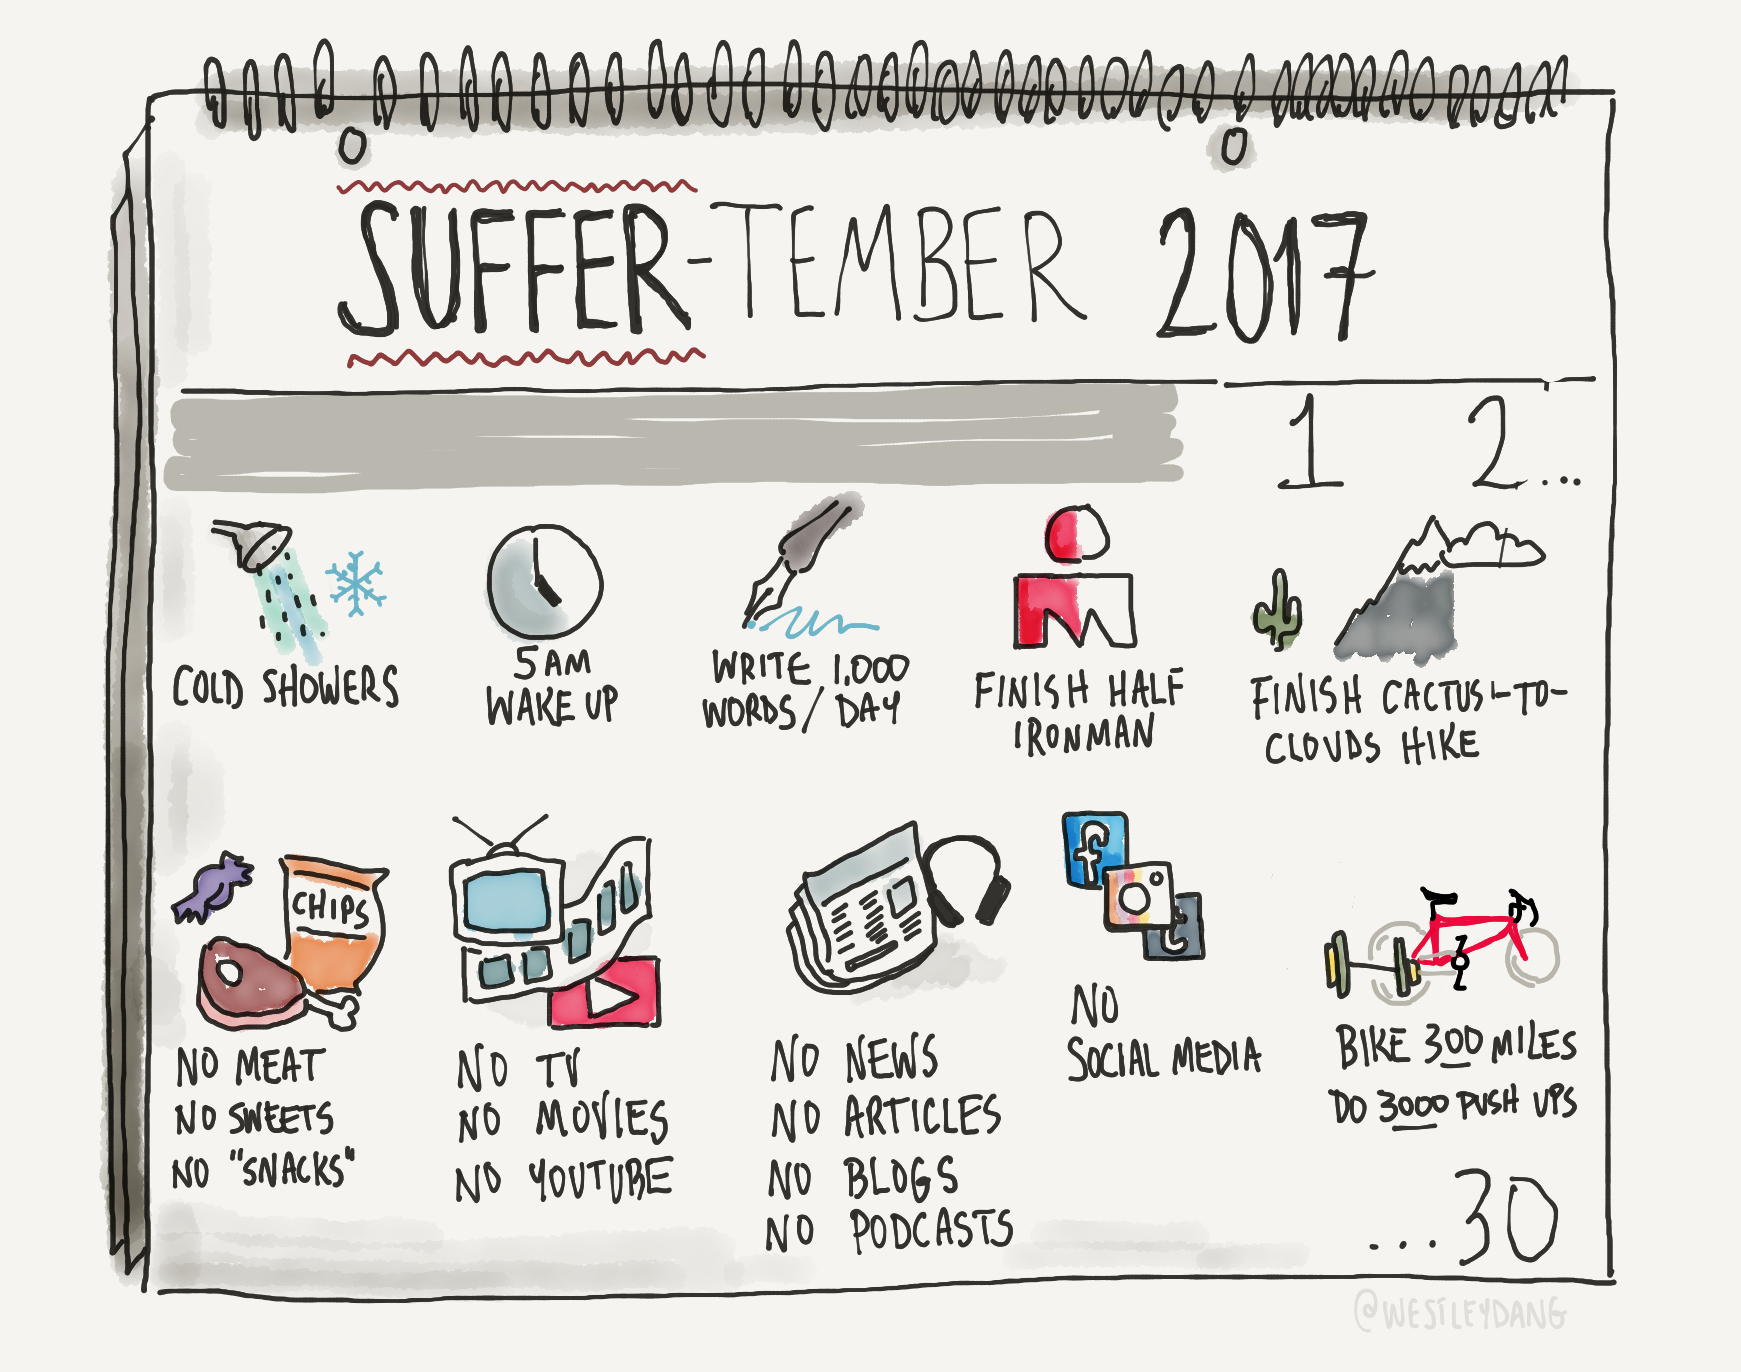 SUFFER-TEMBER 2017
1 2...
COLD SHOWERS
5 AM
WAKE UP
WRITE 1,000
WORDS/DAY
FINISH HALF
IRONMAN
FINISH CACTUS-TO-
CLOUDS HIKE
CHIPS
NO MEAT
NO SWEETS
NO "SNACKS"
NO TV
NO MOVIES
NO YOUTUBE
NO NEWS
NO ARTICLES
NO BLOGS
NO PODCASTS
f
t
NO
SOCIAL MEDIA
BIKE 300 MILES
DO 3000 PUSH UPS
...30
@WESTLEYDANG